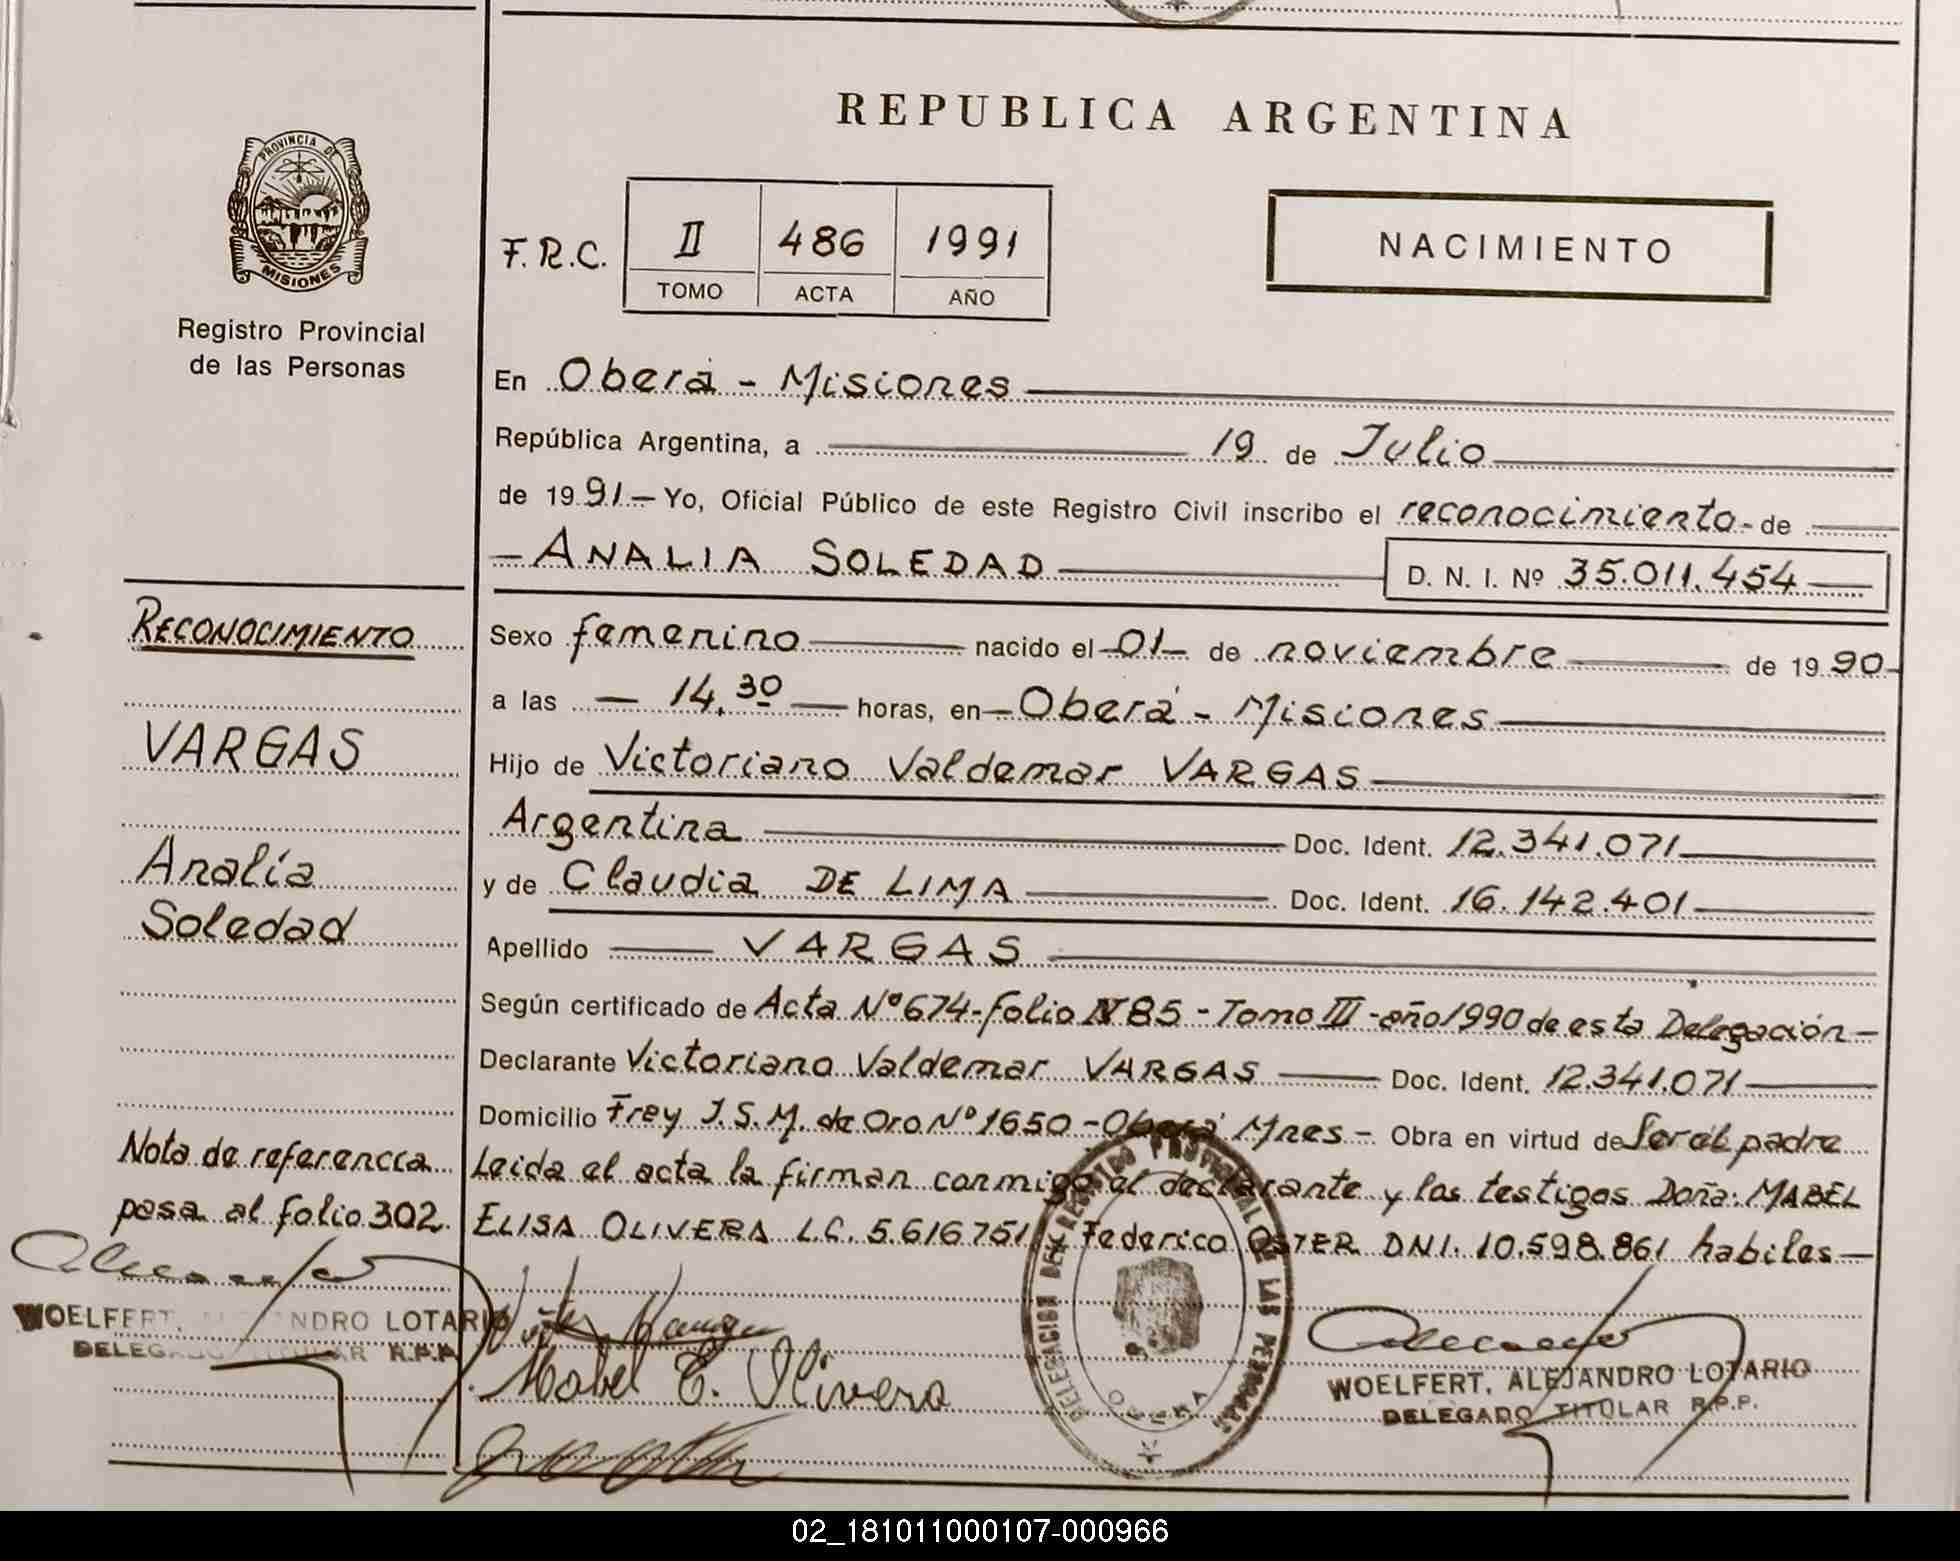 REPUBLICA ARGENTINA
PROVINCIA DE
MISIONES
Registro Provincial
de las Personas
F.R.C.
II 486 1991
TOMO ACTA AÑO
NACIMIENTO
En Oberá - Misiones
República Argentina, a 19 de Julio
de 1991.- Yo, Oficial Público de este Registro Civil inscribo el reconocimiento - de
- ANALIA SOLEDAD D. N. I. Nº 35.011.454
RECONOCIMIENTO
VARGAS
Analía
Soledad
Nota de referencia
pasa al folio 302.
Sexo femenino nacido el 01 de noviembre de 1990-
a las - 14,30 - horas, en - Oberá - Misiones
Hijo de Victoriano Valdemar VARGAS
Argentina Doc. Ident. 12.341.071
y de Claudia DE LIMA Doc. Ident. 16.142.401
Apellido VARGAS
Según certificado de Acta Nº 674-folio Nº 85 - Tomo III - año 1990 de esta Delegación-
Declarante Victoriano Valdemar VARGAS Doc. Ident. 12.341.071
Domicilio Frey J.S.M. de Oro Nº 1650 - Oberá Mnes - Obra en virtud de Ser el padre
Leida el acta la firman conmigo el declarante y los testigos Doña: MABEL
ELISA OLIVERA L.C. 5.616751 Federico OSTER DNI. 10.598.861 habiles-
WOELFERT, ALEJANDRO LOTARIO
DELEGADO TITULAR R.P.P.
Mabel E. Olivera
DELEGACION DEL REGISTRO PROVINCIAL DE LAS PERSONAS
OBERA
WOELFERT, ALEJANDRO LOTARIO
DELEGADO TITULAR R.P.P.
02_181011000107-000966